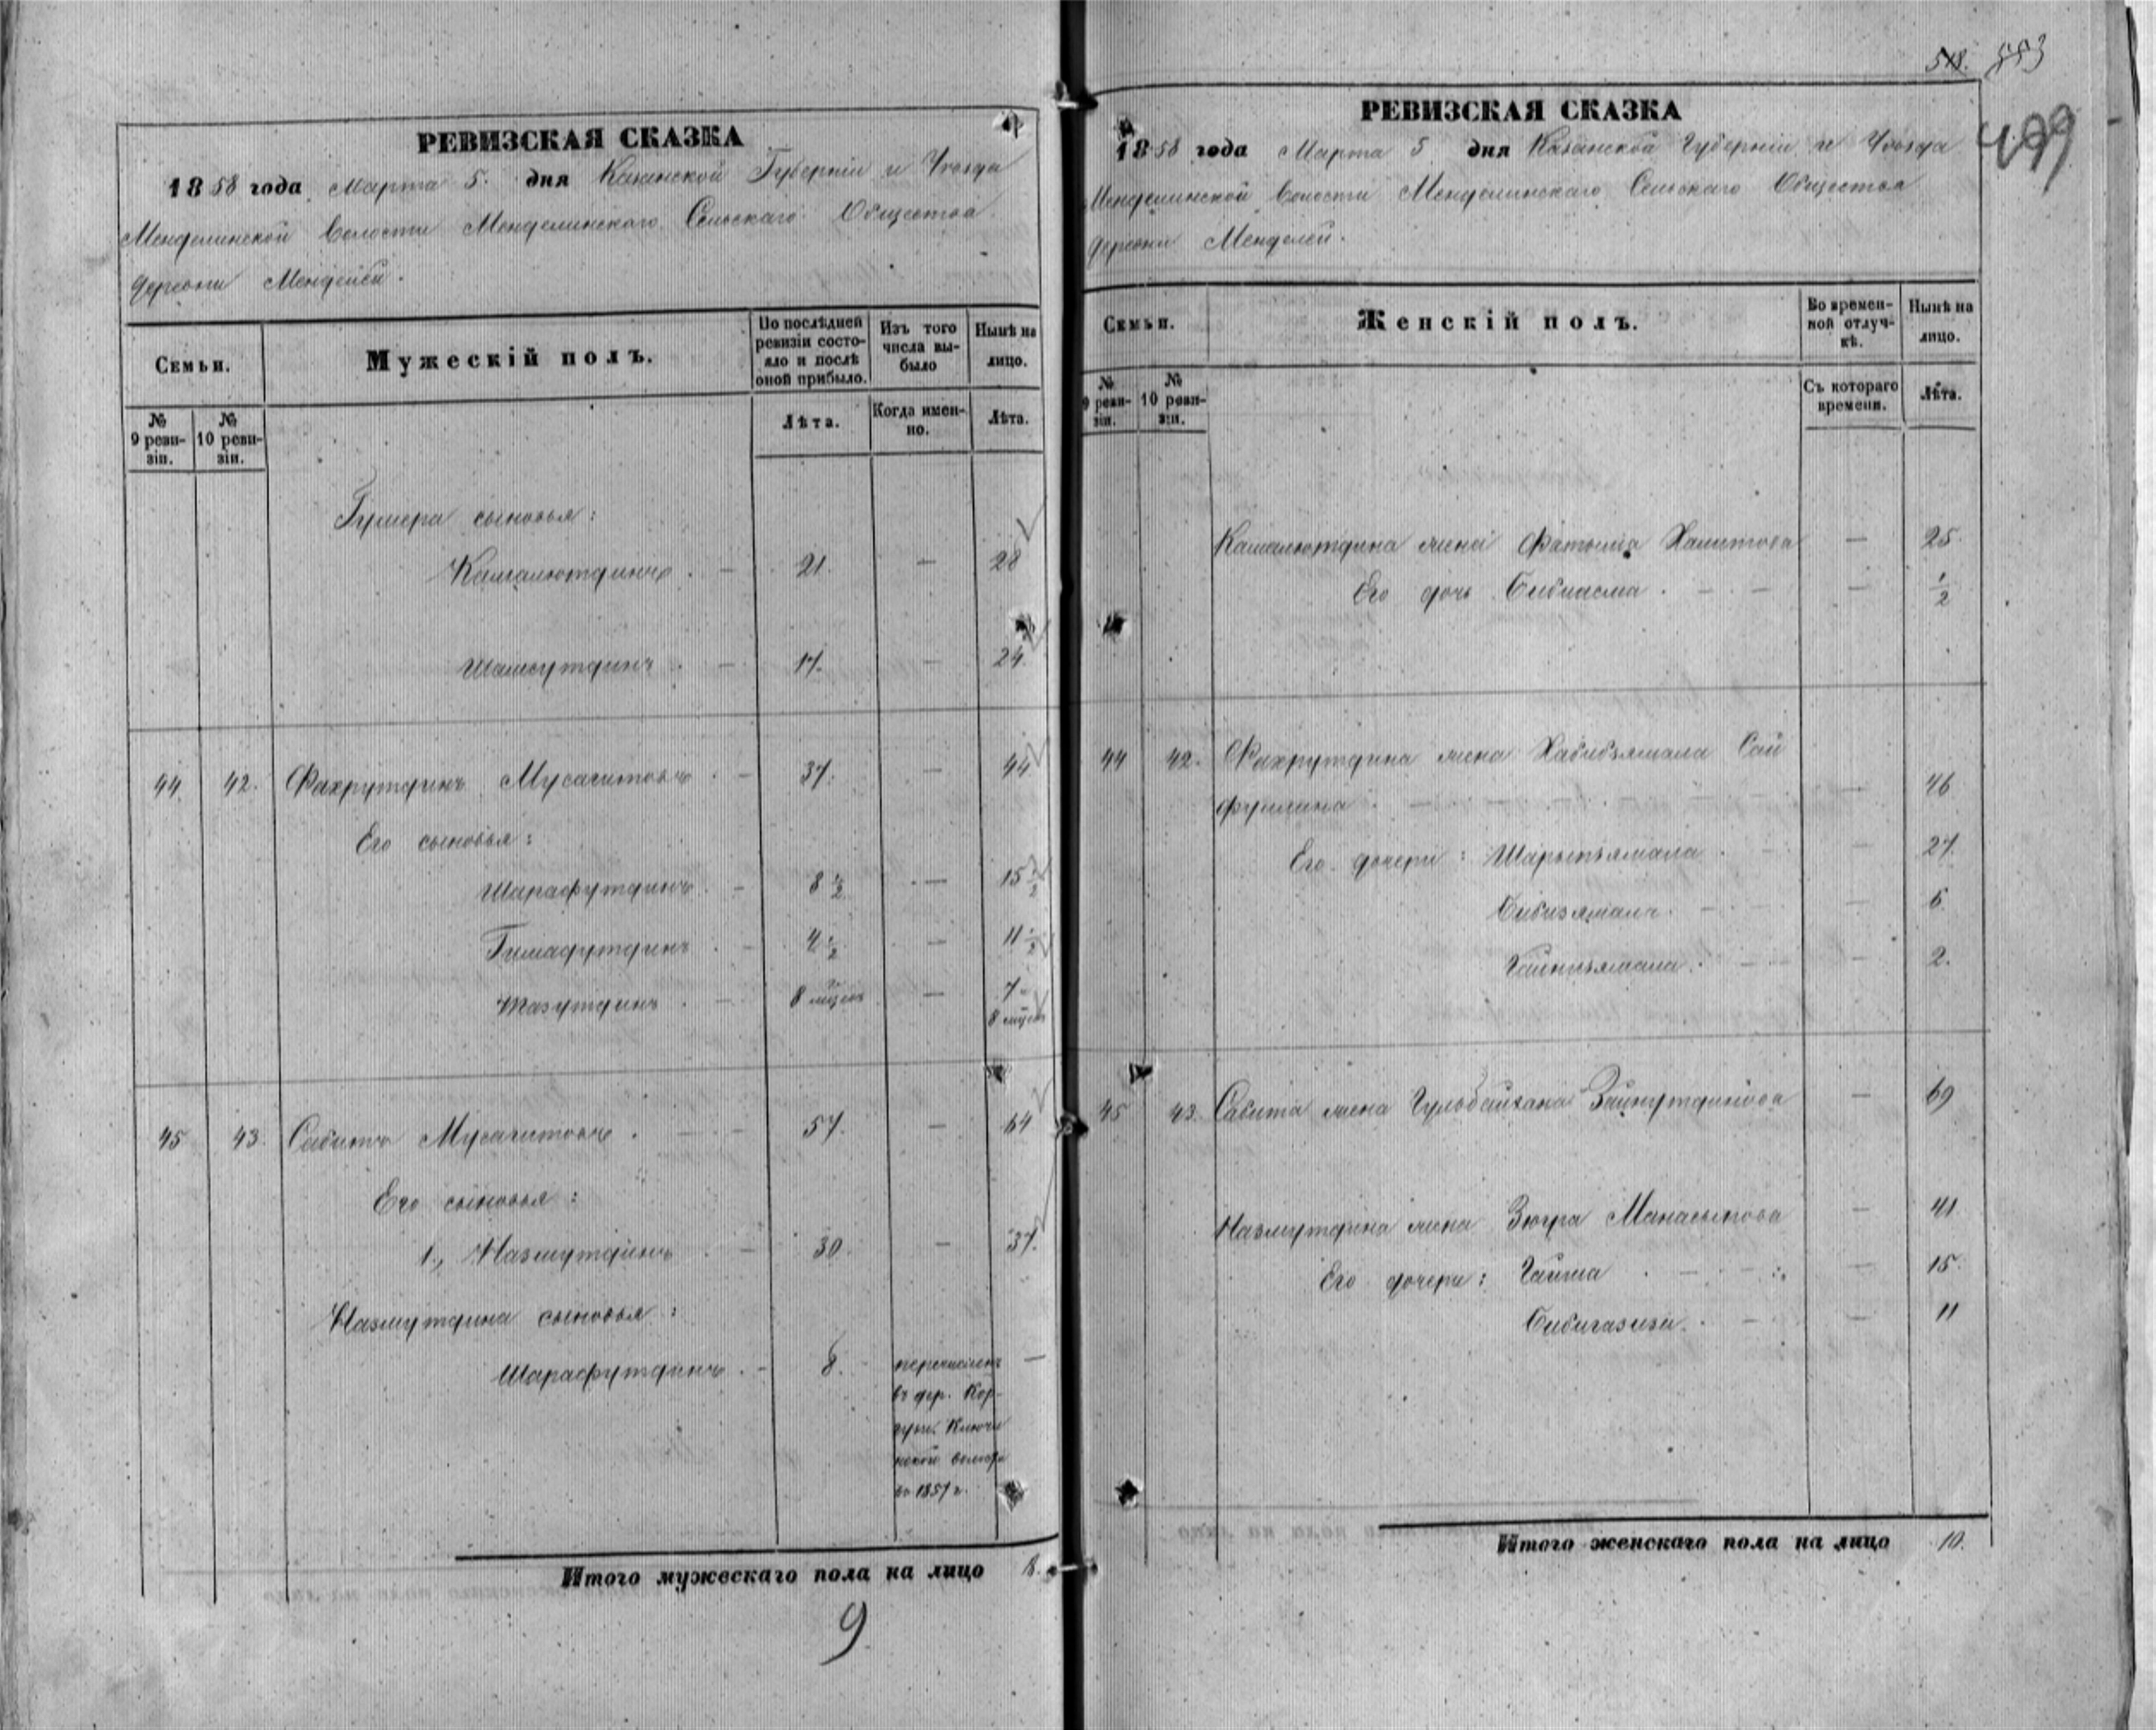 РЕВИЗСКАЯ СКАЗКА
1858 года Марта 5. дня Казанской Губернiи и Уѣзда
Менделинской Волости Менделинскаго Сельскаго Общества
деревни Менделей.
Семьи.
Мужескiй полъ.
По послѣдней ревизiи состояло и послѣ оной прибыло.
Изъ того числа выбыло
Нынѣ на лицо.
№ 9 ревизiи.
№ 10 ревизiи.
Лѣта.
Когда именно.
Лѣта.
Гумера сыновья:
Камалютдинъ . — 21. — 28
Шамсутдинъ . — 17. — 24.
44. 42. Фахрутдинъ Мусагитовъ . — 37. — 44
Его сыновья:
Шарафутдинъ . — 8 1/2 — 15 1/2
Гимафутдинъ . — 4 1/2 — 11 1/2
Тазутдинъ . — 8 мцовъ — 7 8 мцовъ
45 43. Сабитъ Мусагитовъ . — 57. — 64
Его сыновья:
1., Назмутдинъ . — 30. — 37.
Назмутдина сыновья:
Шарафутдинъ . — 8. перечисленъ —
въ дер.
волости
въ 1857 г.
Итого мужескаго пола на лицо 8.
9
518. 553
499
РЕВИЗСКАЯ СКАЗКА
1858 года Марта 5 дня Казанской Губернiи и Уѣзда
Менделинской Волости Менделинскаго Сельскаго Общества
деревни Менделей.
Семьи.
Женскiй полъ.
Во временной отлучкѣ.
Нынѣ на лицо.
№ 9 ревизiи.
№ 10 ревизiи.
Съ котораго времени.
Лѣта.
Камалютдина жена Фатыма Хамитова — 25.
Его дочь Бибиасма . — — 1/2
44 42. Фахрутдина жена Хабибзямала Сай
фуллина . — — 46
Его дочери: Шарыпзямала . — 27.
Бибизямалъ . — — 6.
Гайнизямала . — — 2.
45 43. Сабита жена Гульбайхана Зайнутдинова — 69
Назмутдина жена Зюгра Манасыпова — 41.
Его дочери: Гайша . — — 15.
Бибигазиза . — — 11
Итого женскаго пола на лицо 10.